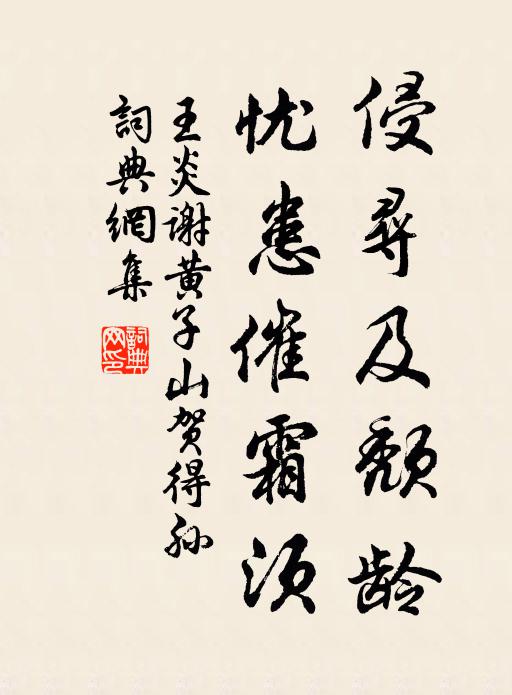 侵尋及颓龄
忧患催霜须
王炎谢黄子山贺得孙
詞典網集
詞典網印